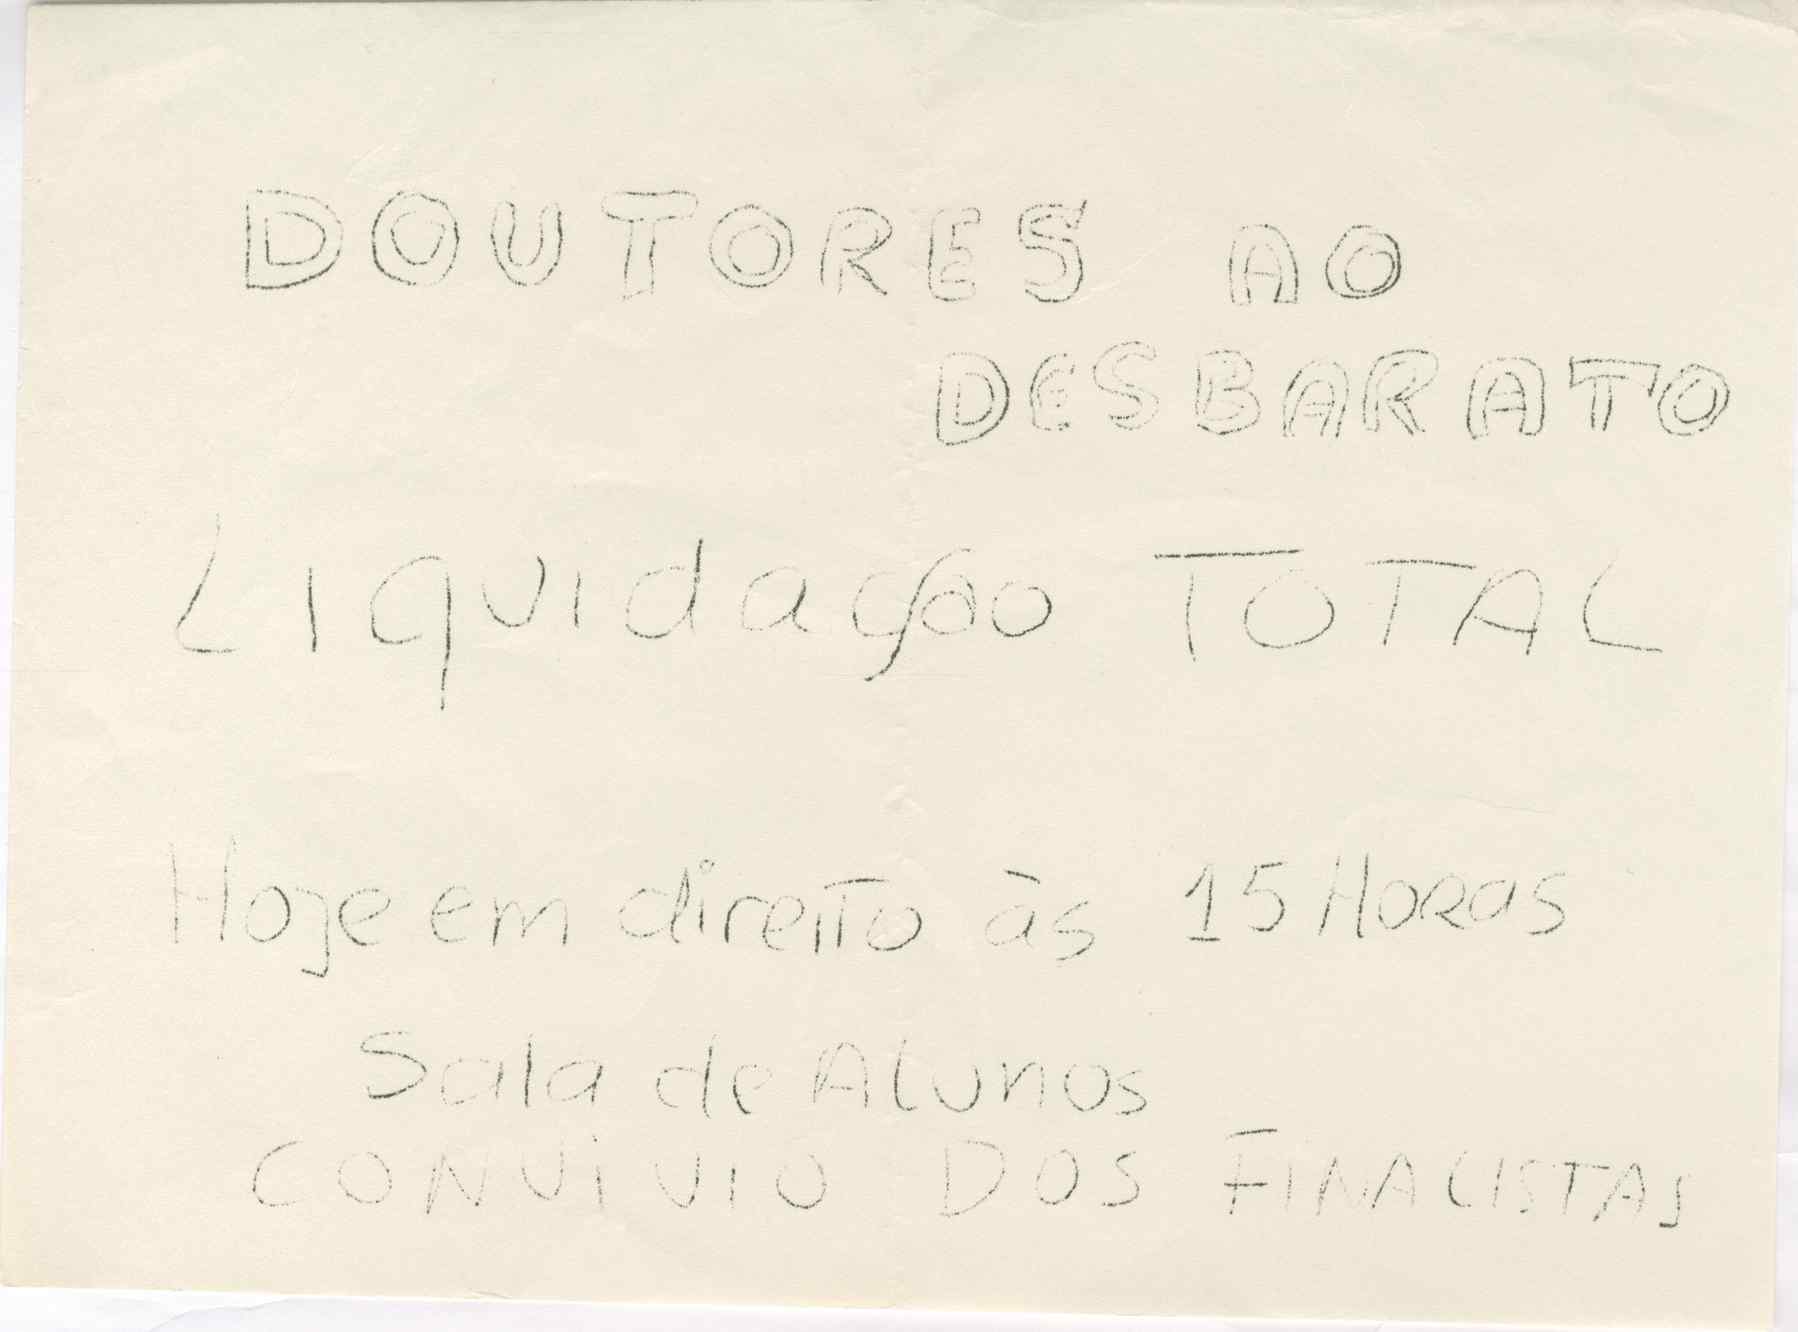 DOUTORES AO
DESBARATO
Liquidação TOTAL
Hoje em direito às 15 Horas
Sala de Alunos
CONVíVIO DOS FINALISTAS